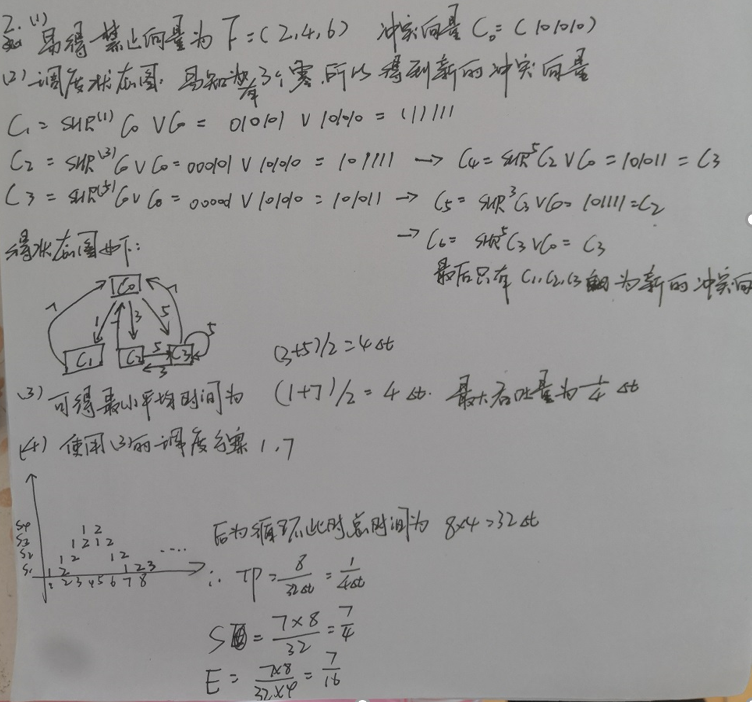 2. (1) 易得禁止向量为 F=(2,4,6) 冲突向量 C₀=(101010)
(2) 调度状态图, 易知有3个零,所以得到新的冲突向量
C₁ = SHR⁽¹⁾ C₀ ∨ C₀ = 010101 ∨ 101010 = 111111
C₂ = SHR⁽³⁾ C₀ ∨ C₀ = 000101 ∨ 101010 = 101111 → C₄ = SHR⁵ C₂ ∨ C₀ = 101011 = C₃
C₃ = SHR⁽⁵⁾ C₀ ∨ C₀ = 000001 ∨ 101010 = 101011 → C₅ = SHR³ C₃ ∨ C₀ = 101111 = C₂
→ C₆ = SHR⁵ C₃ ∨ C₀ = C₃
最后只有 C₁,C₂,C₃ 为新的冲突向
得状态图如下:
C₀
7 1 7 3 5 7
C₁ C₂ 5 C₃ 5
3
(3+5)/2 = 4 Δt
(3) 可得最小平均时间为 (1+7)/2 = 4 Δt. 最大吞吐量为 1/4 Δt
(4) 使用(3)的调度方案 1,7
S₄ 1 2
S₃ 1 2 1 2
S₂ 1 2 1 2 ....
S₁ 1 2 1 2 3
1 2 3 4 5 6 7 8
后为循环,此时总时间为 8×4=32Δt
∴ TP = 8/32Δt = 1/4Δt
S = 7×8/32 = 7/4
E = 7×8/32×4 = 7/16